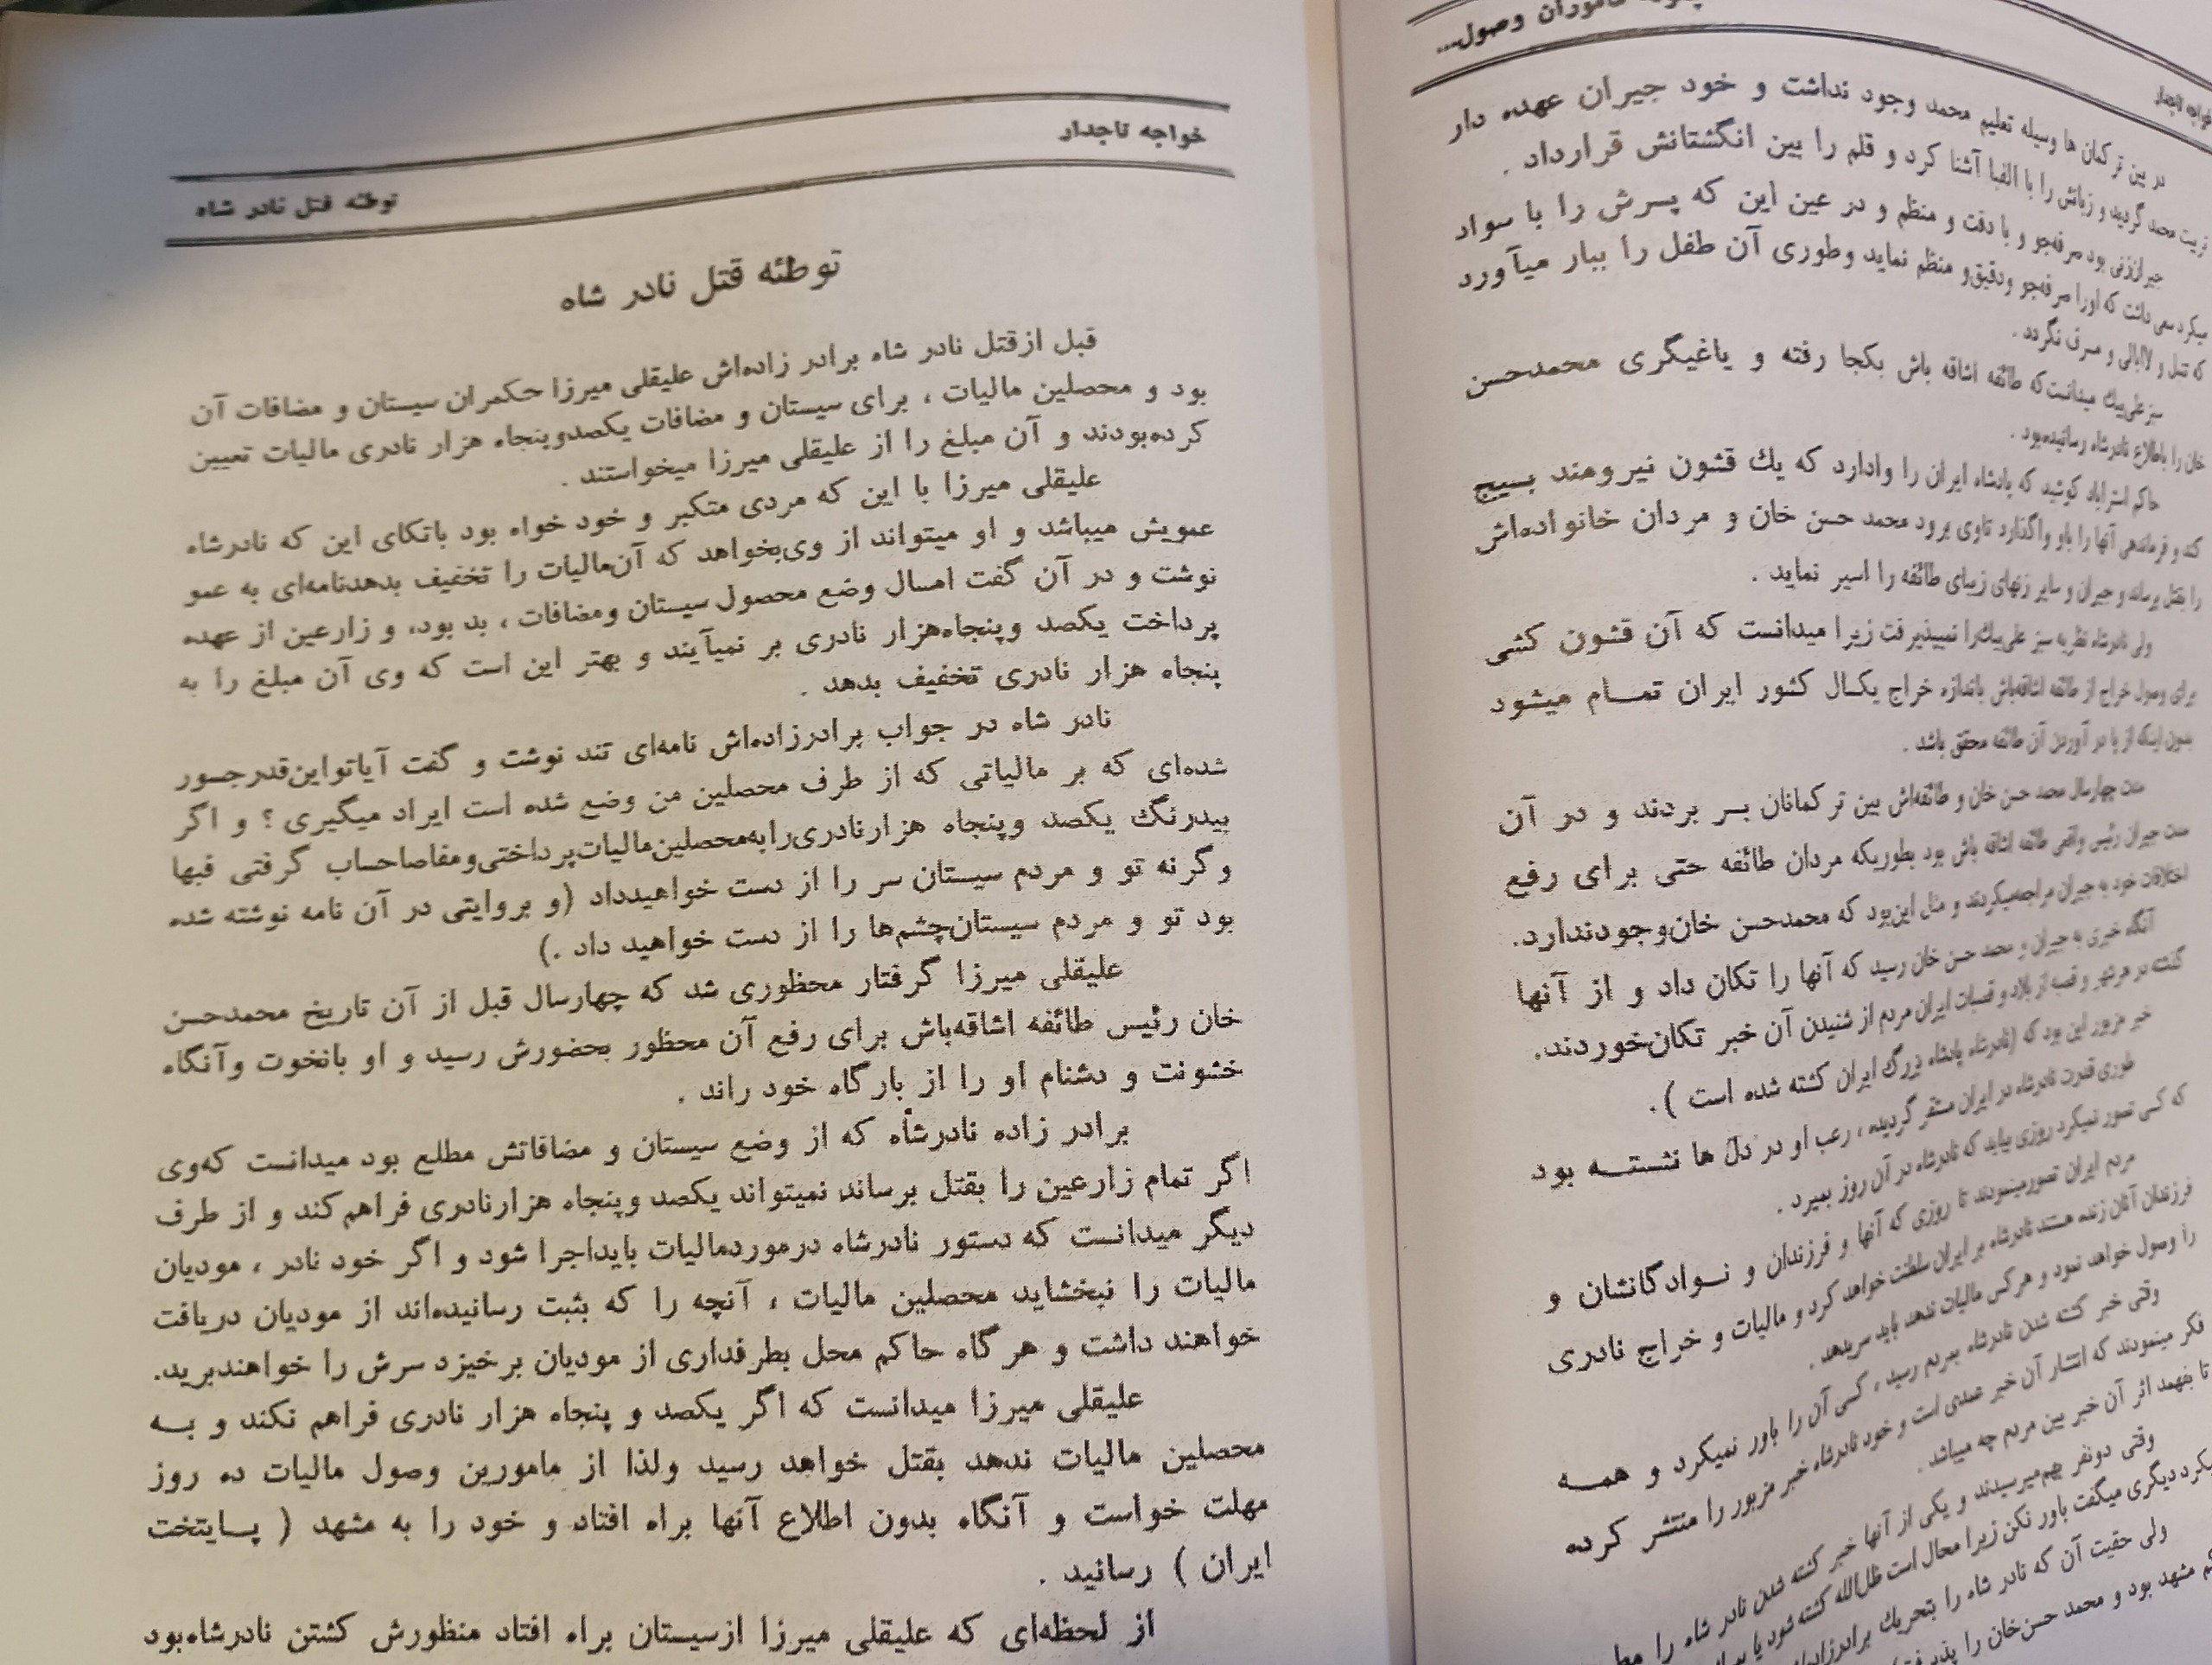 چگونه ماموران وصول...
خواجه تاجدار
در بین ترکمان ها وسیله تعلیم محمد وجود نداشت و خود جیران عهده دار
تربیت محمد گردید و زبانش را با الفبا آشنا کرد و قلم را بین انگشتانش قرارداد .
جیران‌زنی بود صرفه‌جو و با دقت و منظم و در عین این که پسرش را با سواد
میکرد سعی داشت که اورا صرفه‌جو ودقیق‌و منظم نماید وطوری آن طفل را ببار میآورد
که تنبل و لاابالی و مسرف نگردد .
سبزعلی‌بیك میدانست‌که طائفه اشاقه باش بکجا رفته و یاغیگری محمدحسن
خان را باطلاع نادرشاه رسانیده‌بود .
حاکم استراباد کوشید که پادشاه ایران را وادارد که یك قشون نیرومند بسیج
کند و فرماندهی آنها را باو واگذارد تاوی برود محمد حسن خان و مردان خانواده‌اش
را بقتل برساند و جیران و سایر زنهای زیبای طائفه را اسیر نماید .
ولی نادرشاه نظریه سبز علی‌بیك‌را نمیپذیرفت زیرا میدانست که آن قشون کشی
برای وصول خراج از طائفه اشاقه‌باش باندازه خراج یکسال کشور ایران تمام میشود
بدون اینکه از پا در آوردن آن طائفه محقق باشد .
مدت چهارسال محمد حسن خان و طائفه‌اش بین ترکمانان بسر بردند و در آن
مدت جیران رئیس واقعی طائفه اشاقه باش بود بطوریکه مردان طائفه حتی برای رفع
اختلافات خود به جیران مراجعه‌میکردند و مثل این‌بود که محمدحسن خان‌وجودندارد.
آنگاه خبری به جیران و محمد حسن خان رسید که آنها را تکان داد و از آنها
گذشته در هر شهر و قصبه از بلاد و قصبات ایران مردم از شنیدن آن خبر تکان‌خوردند.
خبر مزبور این بود که (نادرشاه پادشاه بزرگ ایران کشته شده است ).
طوری قدرت نادرشاه در ایران مستقر گردیده ، رعب او در دل ها نشسته بود
که کسی تصور نمیکرد روزی بیاید که نادرشاه در آن روز بمیرد .
مردم ایران تصورمینمودند تا روزی که آنها و فرزندان و نوادگانشان و
فرزندان آنان زنده هستند نادرشاه بر ایران سلطنت خواهد کرد و مالیات و خراج نادری
را وصول خواهد نمود و هرکس مالیات ندهد باید سربدهد .
وقتی خبر کشته شدن نادرشاه بمردم رسید ، کسی آن را باور نمیکرد و همه
فکر مینمودند که انتشار آن خبر عمدی است و خود نادرشاه خبر مزبور را منتشر کرده
تا بفهمد اثر آن خبر بین مردم چه میباشد .
وقتی دونفر بهم‌میرسیدند و یکی از آنها خبر کشته شدن نادر شاه را
دیگری میگفت باور نکن زیرا محال است ظل‌الله کشته شود یا
ولی حقیقت آن که نادر شاه را بتحریك برادرزاده‌اش
مشهد بود و محمد حسن‌خان را
خواجه تاجدار
توطئه قتل نادر شاه
توطئه قتل نادر شاه
قبل ازقتل نادر شاه برادر زاده‌اش علیقلی میرزا حکمران سیستان و مضافات آن
بود و محصلین مالیات ، برای سیستان و مضافات یکصدوپنجاه هزار نادری مالیات تعیین
کرده‌بودند و آن مبلغ را از علیقلی میرزا میخواستند .
علیقلی میرزا با این که مردی متکبر و خود خواه بود باتکای این که نادرشاه
عمویش میباشد و او میتواند از وی‌بخواهد که آن‌مالیات را تخفیف بدهدنامه‌ای به عمو
نوشت و در آن گفت امسال وضع محصول سیستان ومضافات ، بد بود، و زارعین از عهده
پرداخت یکصد وپنجاه‌هزار نادری بر نمیآیند و بهتر این است که وی آن مبلغ را به
پنجاه هزار نادری تخفیف بدهد .
نادر شاه در جواب برادرزاده‌اش نامه‌ای تند نوشت و گفت آیاتواین‌قدرجسور
شده‌ای که بر مالیاتی که از طرف محصلین من وضع شده است ایراد میگیری ؟ و اگر
بیدرنگ یکصد وپنجاه هزارنادری‌رابه‌محصلین‌مالیات‌پرداختی‌ومفاصاحساب گرفتی فبها
وگرنه تو و مردم سیستان سر را از دست خواهیدداد (و بروایتی در آن نامه نوشته شده
بود تو و مردم سیستان‌چشم‌ها را از دست خواهید داد .)
علیقلی میرزا گرفتار محظوری شد که چهارسال قبل از آن تاریخ محمدحسن
خان رئیس طائفه اشاقه‌باش برای رفع آن محظور بحضورش رسید و او بانخوت وآنگاه
خشونت و دشنام او را از بارگاه خود راند .
برادر زاده نادرشاه که از وضع سیستان و مضافاتش مطلع بود میدانست که‌وی
اگر تمام زارعین را بقتل برساند نمیتواند یکصد وپنجاه هزارنادری فراهم‌کند و از طرف
دیگر میدانست که دستور نادرشاه درموردمالیات بایداجرا شود و اگر خود نادر ، مودیان
مالیات را نبخشاید محصلین مالیات ، آنچه را که بثبت رسانیده‌اند از مودیان دریافت
خواهند داشت و هرگاه حاکم محل بطرفداری از مودیان برخیزد سرش را خواهندبرید.
علیقلی میرزا میدانست که اگر یکصد و پنجاه هزار نادری فراهم نکند و به
محصلین مالیات ندهد بقتل خواهد رسید ولذا از مامورین وصول مالیات ده روز
مهلت خواست و آنگاه بدون اطلاع آنها براه افتاد و خود را به مشهد ( پایتخت
ایران ) رسانید .
از لحظه‌ای که علیقلی میرزا ازسیستان براه افتاد منظورش کشتن نادرشاه‌بود